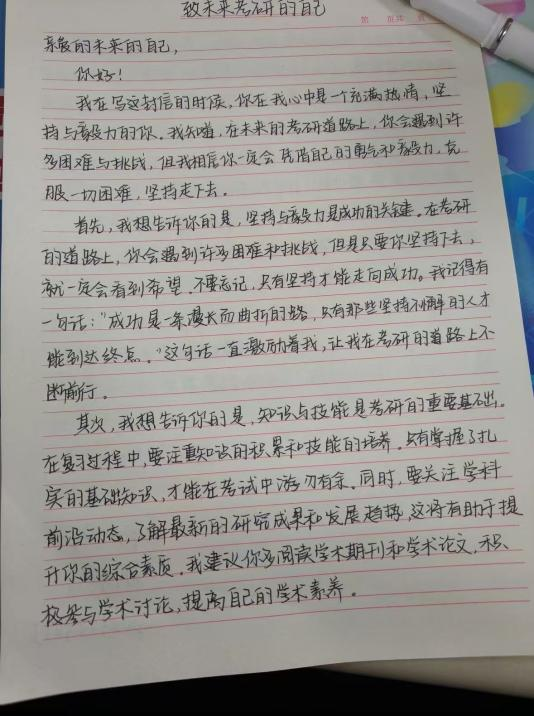 致未来考研的自己
第 页共 页
亲爱的未来的自己，
你好！
我在写这封信的时候，你在我心中是一个充满热情，坚
持与毅力的你。我知道，在未来的考研道路上，你会遇到许
多困难与挑战，但我相信你一定会凭借自己的勇气和毅力，克
服一切困难，坚持走下去。
首先，我想告诉你的是，坚持与毅力是成功的关键。在考研
的道路上，你会遇到许多困难和挑战，但是只要你坚持下去，
就一定会看到希望。不要忘记，只有坚持才能走向成功。我记得有
一句话：“成功是一条漫长而曲折的路，只有那些坚持不懈的人才
能到达终点。”这句话一直激励着我，让我在考研的道路上不
断前行。
其次，我想告诉你的是，知识与技能是考研的重要基础。
在复习过程中，要注重知识的积累和技能的培养。只有掌握了扎
实的基础知识，才能在考试中游刃有余。同时，要关注学科
前沿动态，了解最新的研究成果和发展趋势，这将有助于提
升你的综合素质。我建议你多阅读学术期刊和学术论文，积
极参与学术讨论，提高自己的学术素养。